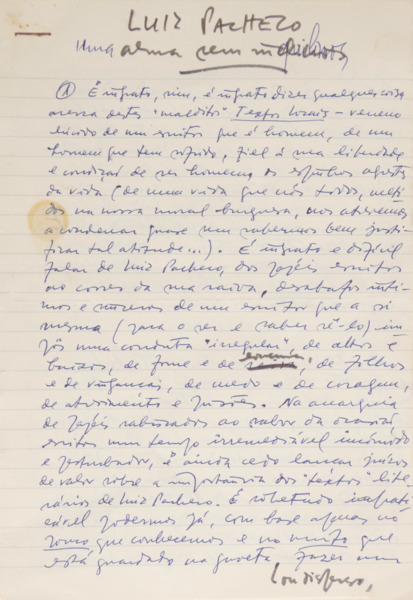 LUIZ PACHECO
Uma alma sem
① É ingrato, sim, é ingrato dizer qualquer coisa
acerca destes "malditos" Textos Locais -
de um escritor que é homem, de um
homem que tem sofrido, fiel à sua liberdade
e condição de ser homem, os espinhos agrestes
da vida (de uma vida que nós todos,
dos na nossa moral burguesa, nos atrevemos
a condenar quase sem sabermos bem justi-
ficar tal atitude...). É ingrato e difícil
falar de Luiz Pacheco, dos papéis escritos
ao correr da sua raiva, desabafos ínti-
mos e sinceros de um escritor que a si
mesmo (para o ser e saber sê-lo) im-
pôs uma conduta "irregular", de altos e
baixos, de fome e de, de filhos
e de vinganças, de medo e de coragem,
de atrevimento e. Na anarquia
de papéis rabiscados ao sabor da ocasião
escritos num tempo irremediável incómodo
e perturbador, é ainda cedo lançar juízos
de valor sobre a importância dos "textos" lite-
rários de Luiz Pacheco. E sobretudo
podermos já, com base apenas no
pouco que conhecemos e no muito que
está guardado na gaveta, fazer um